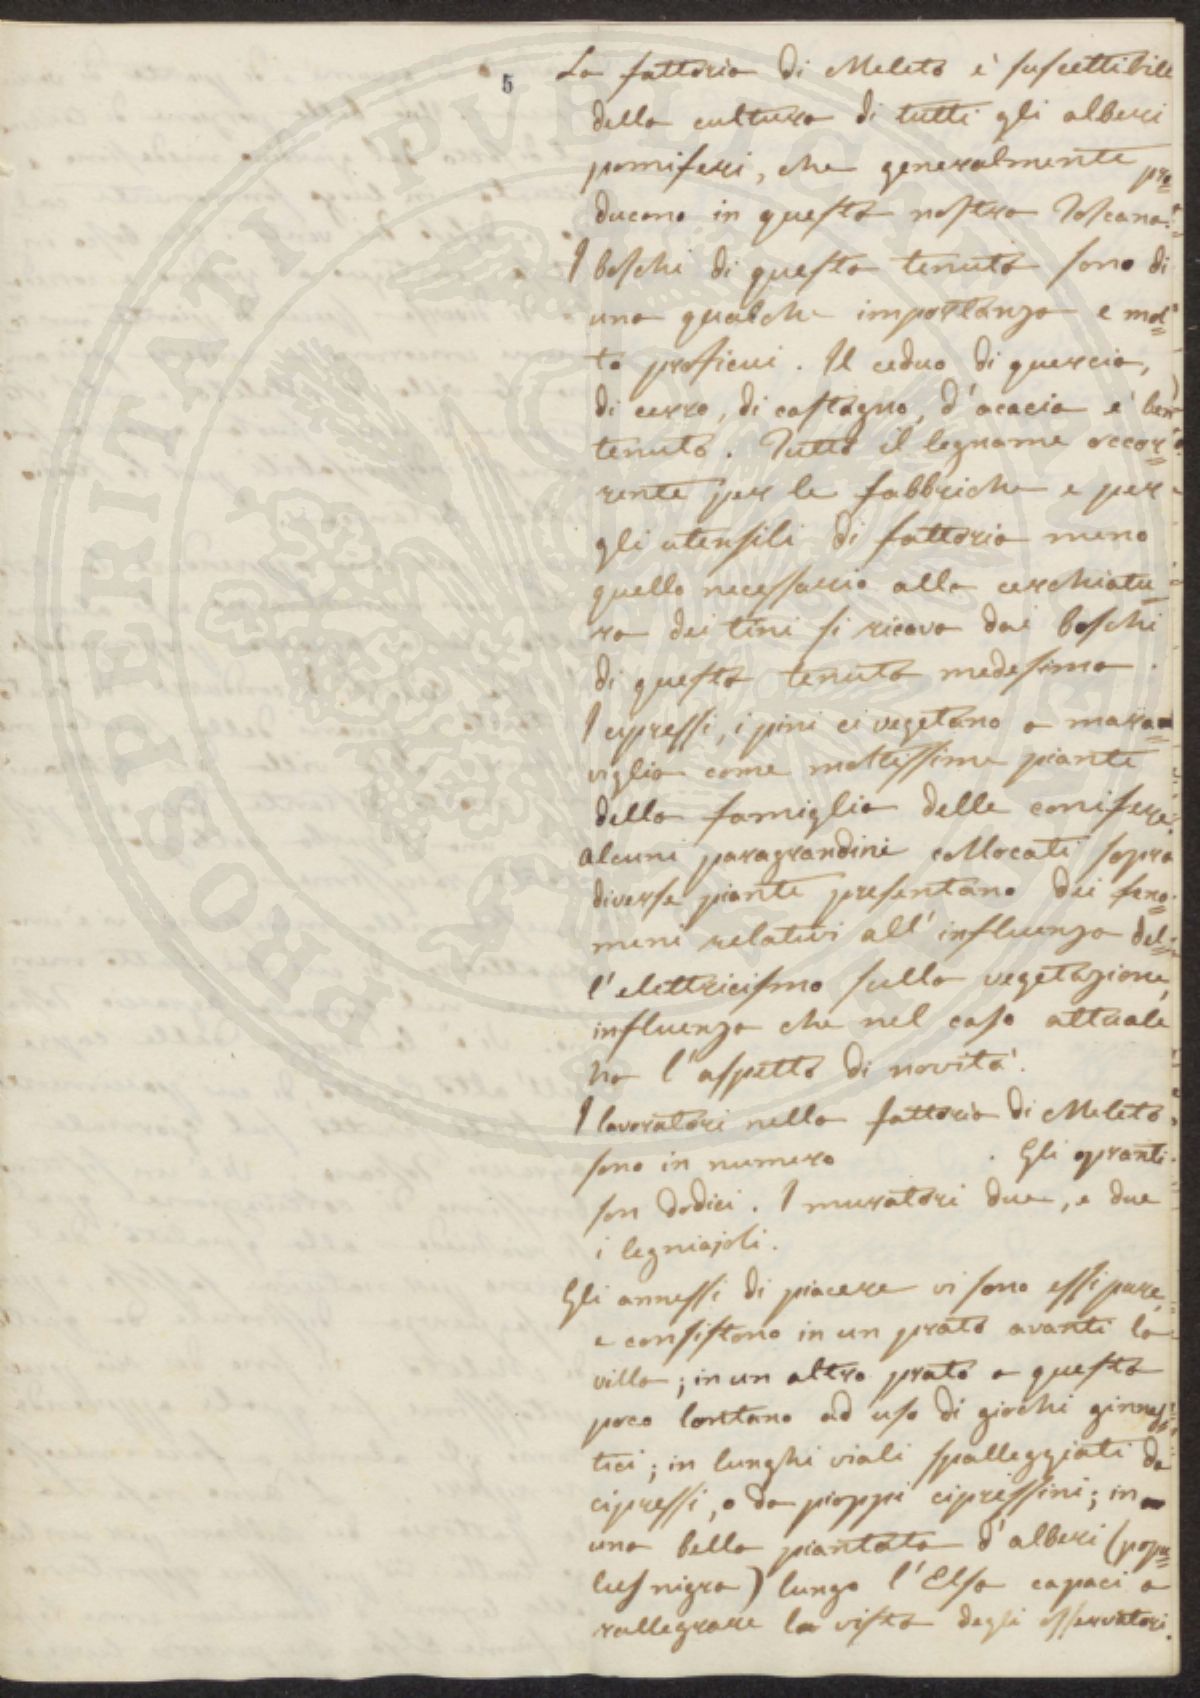 5
La fattoria di Meleto è suscettibile
della cultura di tutti gli alberi
pomiferi, che generalmente pro=
ducono in questa nostra Toscana.
I boschi di questa tenuta sono di
una qualche importanza e mol=
to proficui. Il ceduo di quercia,
di cerro, di castagno, d'acacia è ben
tenuto. Tutto il legname occor=
rente per le fabbriche e per
gli utensili di fattoria meno
quello necessario alla cerchiatu
ra dei tini si ricava dai boschi
di questa tenuta medesima.
I cipressi, i pini ci vegetano a mara=
viglia come moltissime piante
della famiglia delle conifere.
Alcuni paragrandini collocati sopra
diverse piante presentano dei feno=
meni relativi all'influenza del=
l'elettricismo sulla vegetazione,
influenza che nel caso attuale
ha l'aspetto di novità.
I lavoratori nella fattoria di Meleto
sono in numero . Gli opranti
son dodici. I muratori due, e due
i legniajoli.
Gli annessi di piacere vi sono essi pure,
e consistono in un prato avanti la
villa; in un altro prato a questa
poco lontano ad uso di giochi ginnas=
tici; in lunghi viali spalleggiati da
cipressi, o da pioppi cipressini; in
una bella piantata d'alberi (popu=
lus nigra) lungo l'Elsa capaci a
rallegrare la vista degli osservatori.
PROSPERITATI PVBLICAE